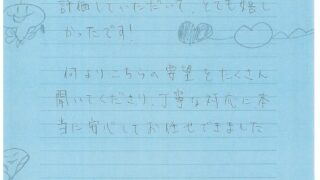 評価していただいて、とても嬉し
かったです!
何よりこちらの要望をたくさん
聞いてくださり、丁寧な対応に本
当に安心してお任せできました